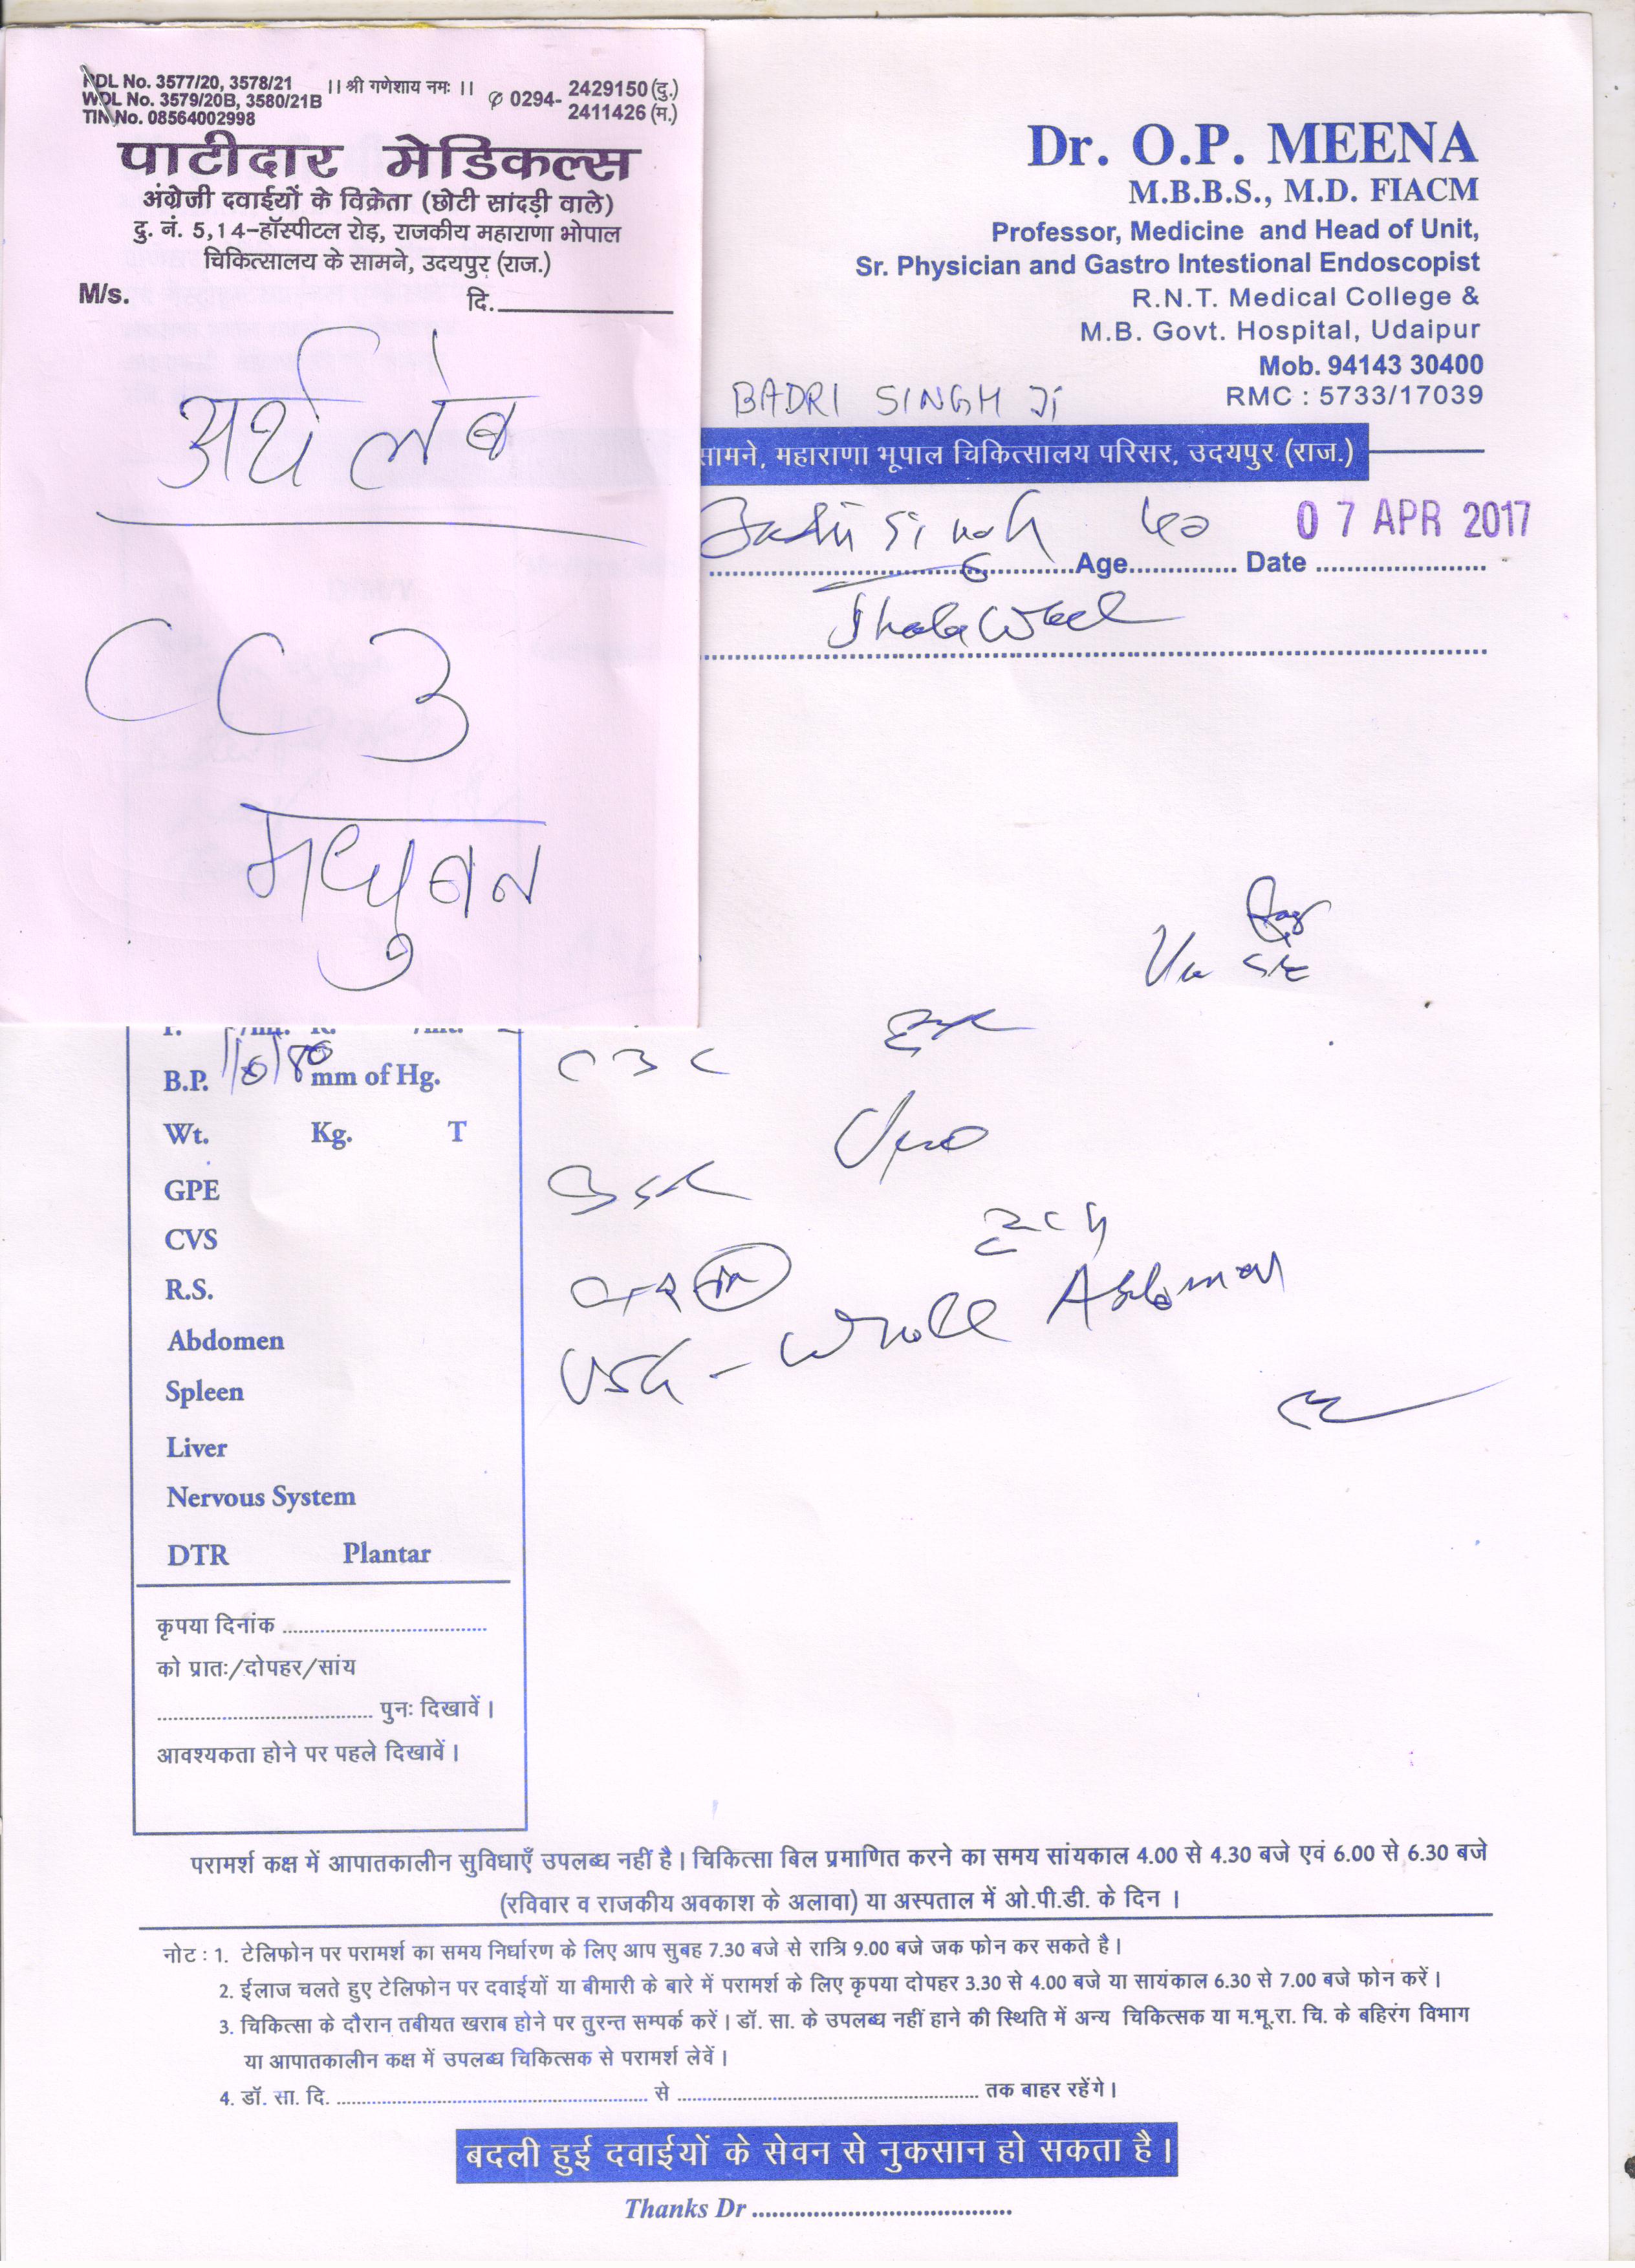 RDL No. 3577/20, 3578/21
WDL No. 3579/20B, 3580/21B
TIN No. 08564002998
।। श्री गणेशाय नमः ।।
0294- 2429150 (दु.)
2411426 (म.)
पाटीदार मेडिकल्स
अंग्रेजी दवाईयों के विक्रेता (छोटी सांदड़ी वाले)
दु. नं. 5,14-हॉस्पीटल रोड़, राजकीय महाराणा भोपाल
चिकित्सालय के सामने, उदयपुर (राज.)
M/s. दि.
अर्थ लेब
CC3
मधुबन
Dr. O.P. MEENA
M.B.B.S., M.D. FIACM
Professor, Medicine and Head of Unit,
Sr. Physician and Gastro Intestional Endoscopist
R.N.T. Medical College &
M.B. Govt. Hospital, Udaipur
Mob. 94143 30400
RMC : 5733/17039
BADRI SINGH Ji
सामने, महाराणा भूपाल चिकित्सालय परिसर, उदयपुर (राज.)
Badri Singh Age Date 07 APR 2017
CBC
USG - Whole Abdomen
B.P. 110/80 mm of Hg.
Wt. Kg. T
GPE
CVS
R.S.
Abdomen
Spleen
Liver
Nervous System
DTR Plantar
कृपया दिनांक
को प्रातः/दोपहर/सांय
पुनः दिखावें ।
आवश्यकता होने पर पहले दिखावें ।
परामर्श कक्ष में आपातकालीन सुविधाएँ उपलब्ध नहीं है । चिकित्सा बिल प्रमाणित करने का समय सांयकाल 4.00 से 4.30 बजे एवं 6.00 से 6.30 बजे
(रविवार व राजकीय अवकाश के अलावा) या अस्पताल में ओ.पी.डी. के दिन ।
नोट : 1. टेलिफोन पर परामर्श का समय निर्धारण के लिए आप सुबह 7.30 बजे से रात्रि 9.00 बजे जक फोन कर सकते है ।
2. ईलाज चलते हुए टेलिफोन पर दवाईयों या बीमारी के बारे में परामर्श के लिए कृपया दोपहर 3.30 से 4.00 बजे या सायंकाल 6.30 से 7.00 बजे फोन करें ।
3. चिकित्सा के दौरान तबीयत खराब होने पर तुरन्त सम्पर्क करें । डॉ. सा. के उपलब्ध नहीं हाने की स्थिति में अन्य चिकित्सक या म.भू.रा. चि. के बहिरंग विभाग
या आपातकालीन कक्ष में उपलब्ध चिकित्सक से परामर्श लेवें ।
4. डॉ. सा. दि. से तक बाहर रहेंगे ।
बदली हुई दवाईयों के सेवन से नुकसान हो सकता है ।
Thanks Dr